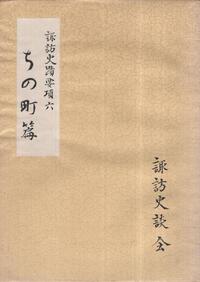 諏訪史蹟要項 六
ちの町篇
諏訪史談会